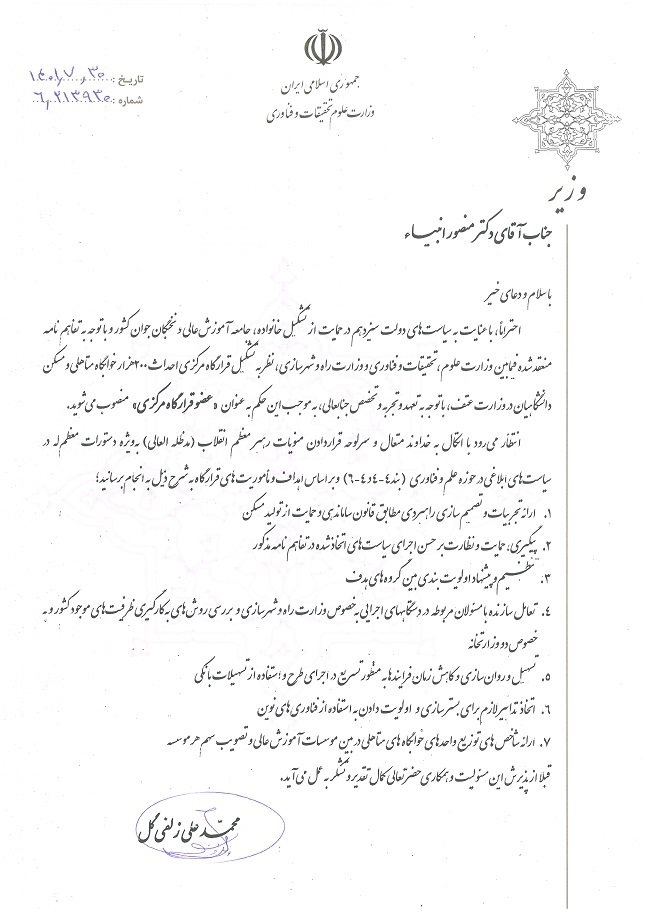 جمهوری اسلامی ایران
وزارت علوم تحقیقات و فناوری
تاریخ: ۱۴۰۱,۷,۳۰
شماره: ۶,۲۱۳۹۳۰
وزیر
جناب آقای دکتر منصور انبیاء
باسلام و دعای خیر
احتراماً، با عنایت به سیاست‌های دولت سیزدهم در حمایت از تشکیل خانواده، جامعه آموزش عالی و نخبگان جوان کشور و با توجه به تفاهم نامه
منعقد شده فیمابین وزارت علوم، تحقیقات و فناوری و وزارت راه و شهرسازی، نظر به تشکیل قرارگاه مرکزی احداث ۲۰۰ هزار خوابگاه متاهلی و مسکن
دانشگاهیان در وزارت عتف، با توجه به تعهد و تجربه و تخصص جنابعالی، به موجب این حکم به عنوان «عضو قرارگاه مرکزی» منصوب می‌شوید.
انتظار می‌رود با اتکال به خداوند متعال و سرلوحه قراردادن منویات رهبر معظم انقلاب (مدظله العالی) به‌ویژه دستورات معظم‌له در
سیاست‌های ابلاغی در حوزه علم و فناوری (بند ۴-۴ و ۴-۶) و بر اساس اهداف و مأموریت‌های قرارگاه به شرح ذیل به انجام برسانید؛
۱. ارائه تجربیات و تصمیم سازی راهبردی مطابق قانون ساماندهی و حمایت از تولید مسکن
۲. پیگیری، حمایت و نظارت بر حسن اجرای سیاست‌های اتخاذ شده در تفاهم نامه مذکور
۳. تنظیم و پیشنهاد اولویت بندی بین گروه‌های هدف
۴. تعامل سازنده با مسئولان مربوطه در دستگاههای اجرایی به خصوص وزارت راه و شهرسازی و بررسی روش‌های به کارگیری ظرفیت‌های موجود کشور و به
خصوص دو وزارتخانه
۵. تسهیل و روان سازی و کاهش زمان فرایندها به منظور تسریع در اجرای طرح و استفاده از تسهیلات بانکی
۶. اتخاذ تدابیر لازم برای بسترسازی و اولویت دادن به استفاده از فناوری‌های نوین
۷. ارائه شاخص‌های توزیع واحدهای خوابگاه‌های متاهلی در بین موسسات آموزش عالی و تصویب سهم هر موسسه
قبلا از پذیرش این مسئولیت و همکاری حضرتعالی کمال تقدیر و تشکر به عمل می‌آید.
محمد علی زلفی گل